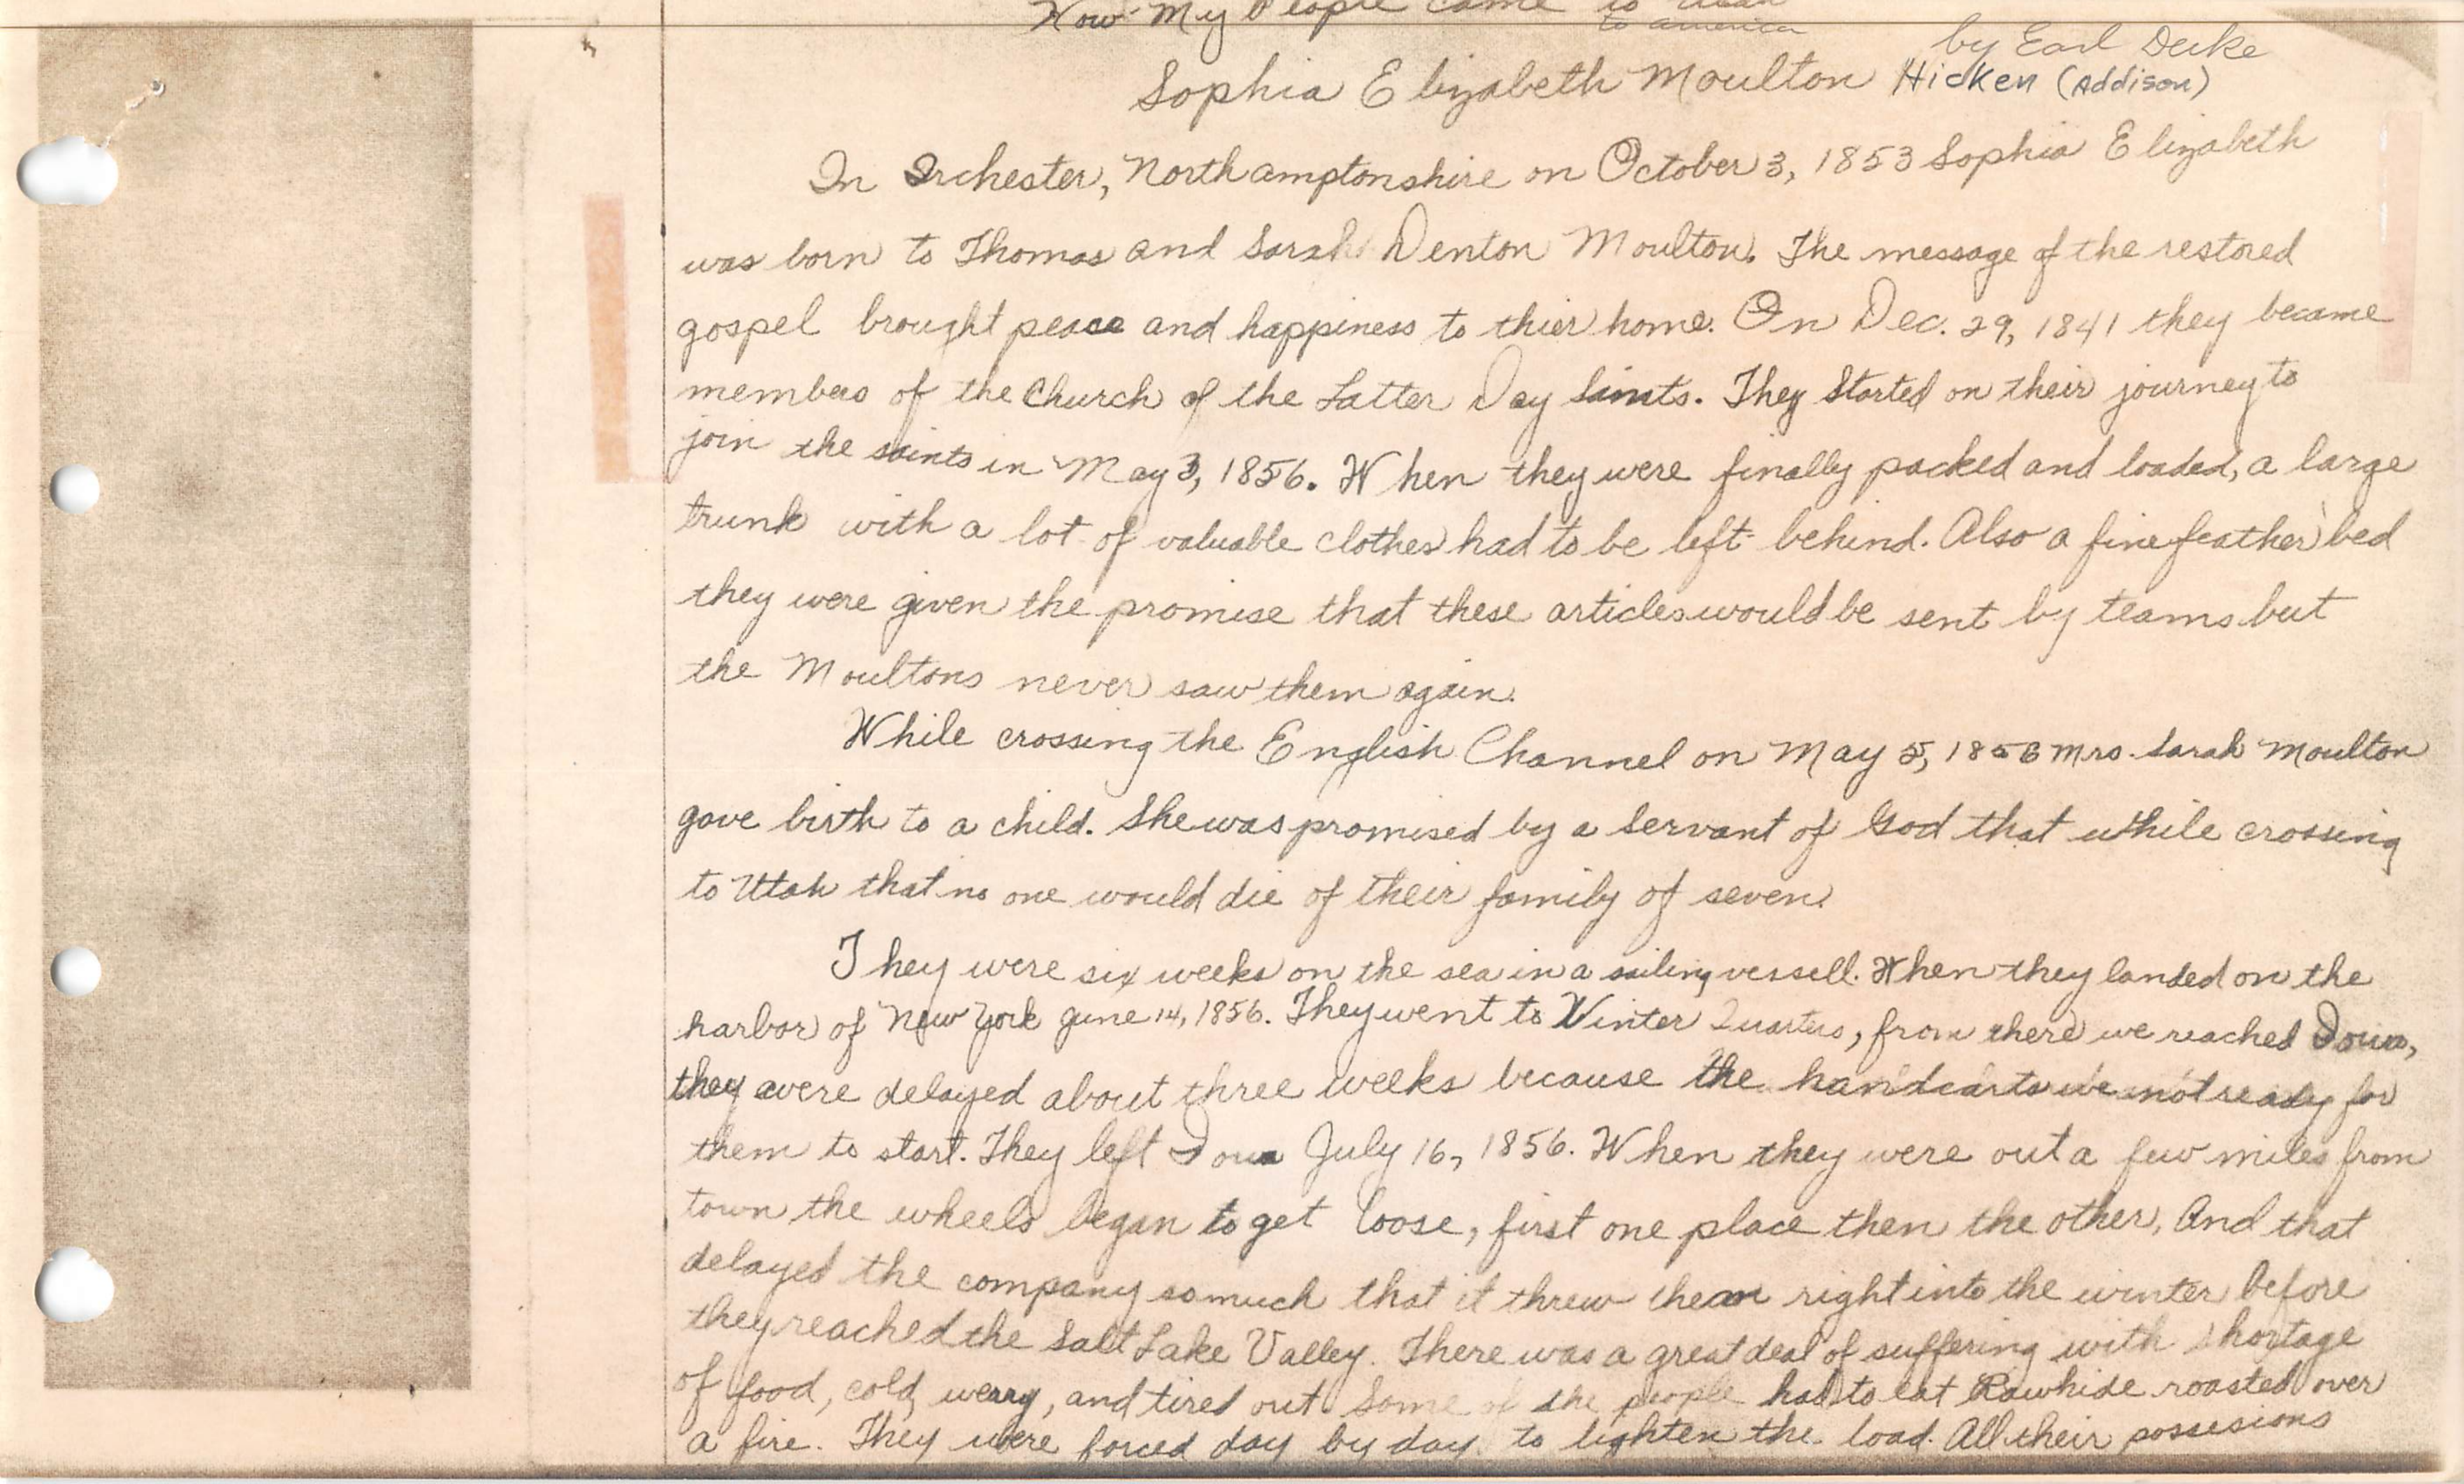 How My People came to Utah
to america
by Earl Duke
Sophia Elizabeth Moulton Hicken (Addison)
In Irchester, Northamptonshire on October 3, 1853 Sophia Elizabeth
was born to Thomas and Sarah Denton Moulton. The message of the restored
gospel brought peace and happiness to thier home. On Dec. 29, 1841 they became
members of the Church of the Latter Day Saints. They Started on their journey to
join the saints in May 3, 1856. When they were finally packed and loaded, a large
trunk with a lot of valuable clothes had to be left behind. Also a fine feather bed
they were given the promise that these articles would be sent by teams but
the Moultons never saw them again.
While crossing the English Channel on May 5, 1856 Mrs. Sarah Moulton
gave birth to a child. She was promised by a Servant of God that while crossing
to Utah that no one would die of their family of seven.
They were six weeks on the sea in a sailing vessell. When they landed on the
harbor of New York June 14, 1856. They went to Winter Quarters, from there we reached Iowa,
they were delayed about three weeks because the handcarts we not ready for
them to start. They left Iowa July 16, 1856. When they were out a few miles from
town the wheels began to get loose, first one place then the other, And that
delayed the company somuch that it threw them right into the winter before
they reached the Salt Lake Valley. There was a great deal of suffering with shortage
of food, cold, weary, and tired out Some of the people had to eat Rawhide roasted over
a fire. They were forced day by day to lighten the load. All their possesions